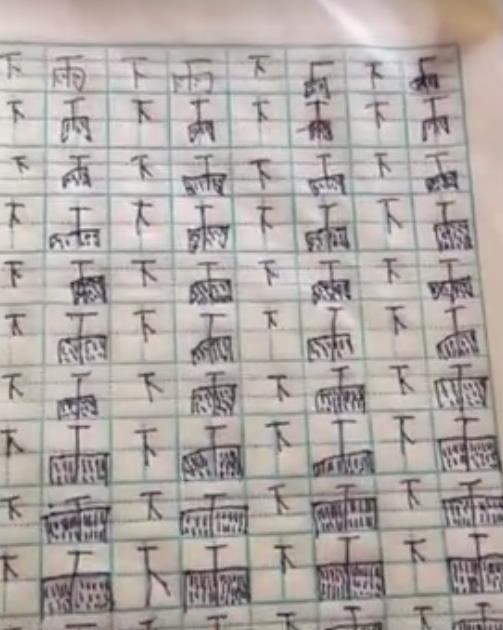 下雨下雨下雨下雨
下雨下雨下雨下雨
下雨下雨下雨下雨
下雨下雨下雨下雨
下雨下雨下雨下雨
下雨下雨下雨下雨
下雨下雨下雨下雨
下雨下雨下雨下雨
下雨下雨下雨下雨
下雨下雨下雨下雨